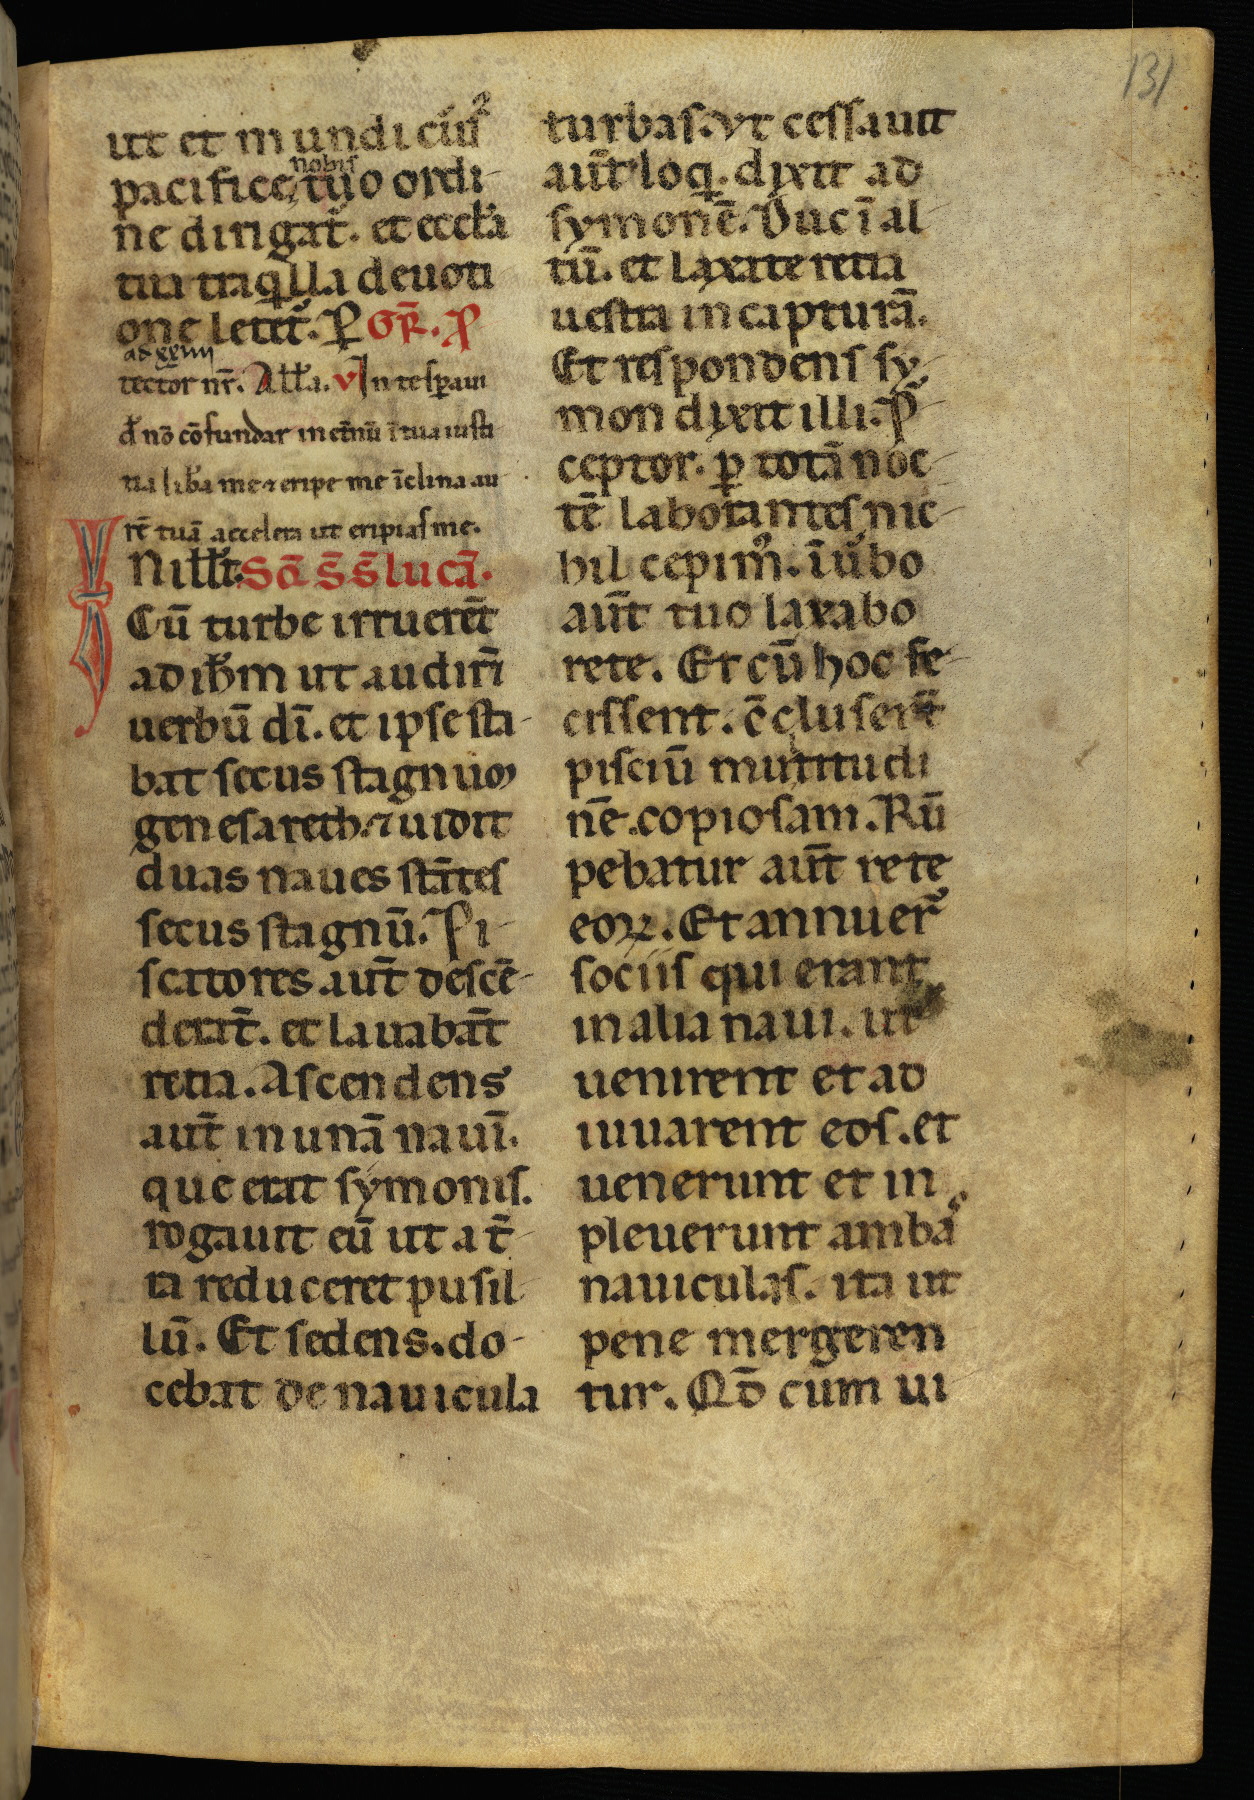 131
ut et mundi cursꝰ
nobis
pacifice, tuo ordi-
ne dirigat᷑. et eccłia
tua traq̇lla deuoti
one letet᷑. ꝑ GR̄. P
ad xxiiii
tector nr̄. Ałła. v In te speraui
dn̄e nō cōfundar in et̄nū ī tua iusti
tia libͣa me ⁊ eripe me īclina au
rē tuā accelera ut eripias me.
IN illͦ t. Sc̄d S̄ S̄ lucā.
Cū turbe irruerēt
ad ih̄m ut audirēt
uerbū dī. et ipse sta-
bat secus stagnum
genesareth. ⁊ uidit
duas naues stātes
secus stagnū. Pi-
scatores aut̄ descē-
derāt. et lauabāt
retia. Ascendens
aut̄ in unā nauī.
que erat symonis.
rogauit eū ut a t̄
ra reduceret pusil-
lū. Et sedens. do-
cebat de nauicula
turbas. vt cessauit
aut̄ loqͥ. dixit ad
symonē. Duc ī al
tū. et laxate retia
uestra in capturā.
Et respondens sy-
mon dixit illi. P᷑
ceptor. ꝑ totā noc-
tē laborantes nic-
hil cepimꝰ. ī u᷑bo
aut̄ tuo laxabo
rete. Et cū hoc fe-
cissent. ↄ̄cluserūt
pisciū multitudi
nē. copiosam. Rū
pebatur aut̄ rete
eoꝝ. Et annuer᷑
sociis qui erant
in alia naui. ut
uenirent et ad
iuuarent eos. et
uenerunt et in
pleuerunt ambaˢ
nauiculas. ita ut
pene mergeren
tur. Qd̄ cum ui